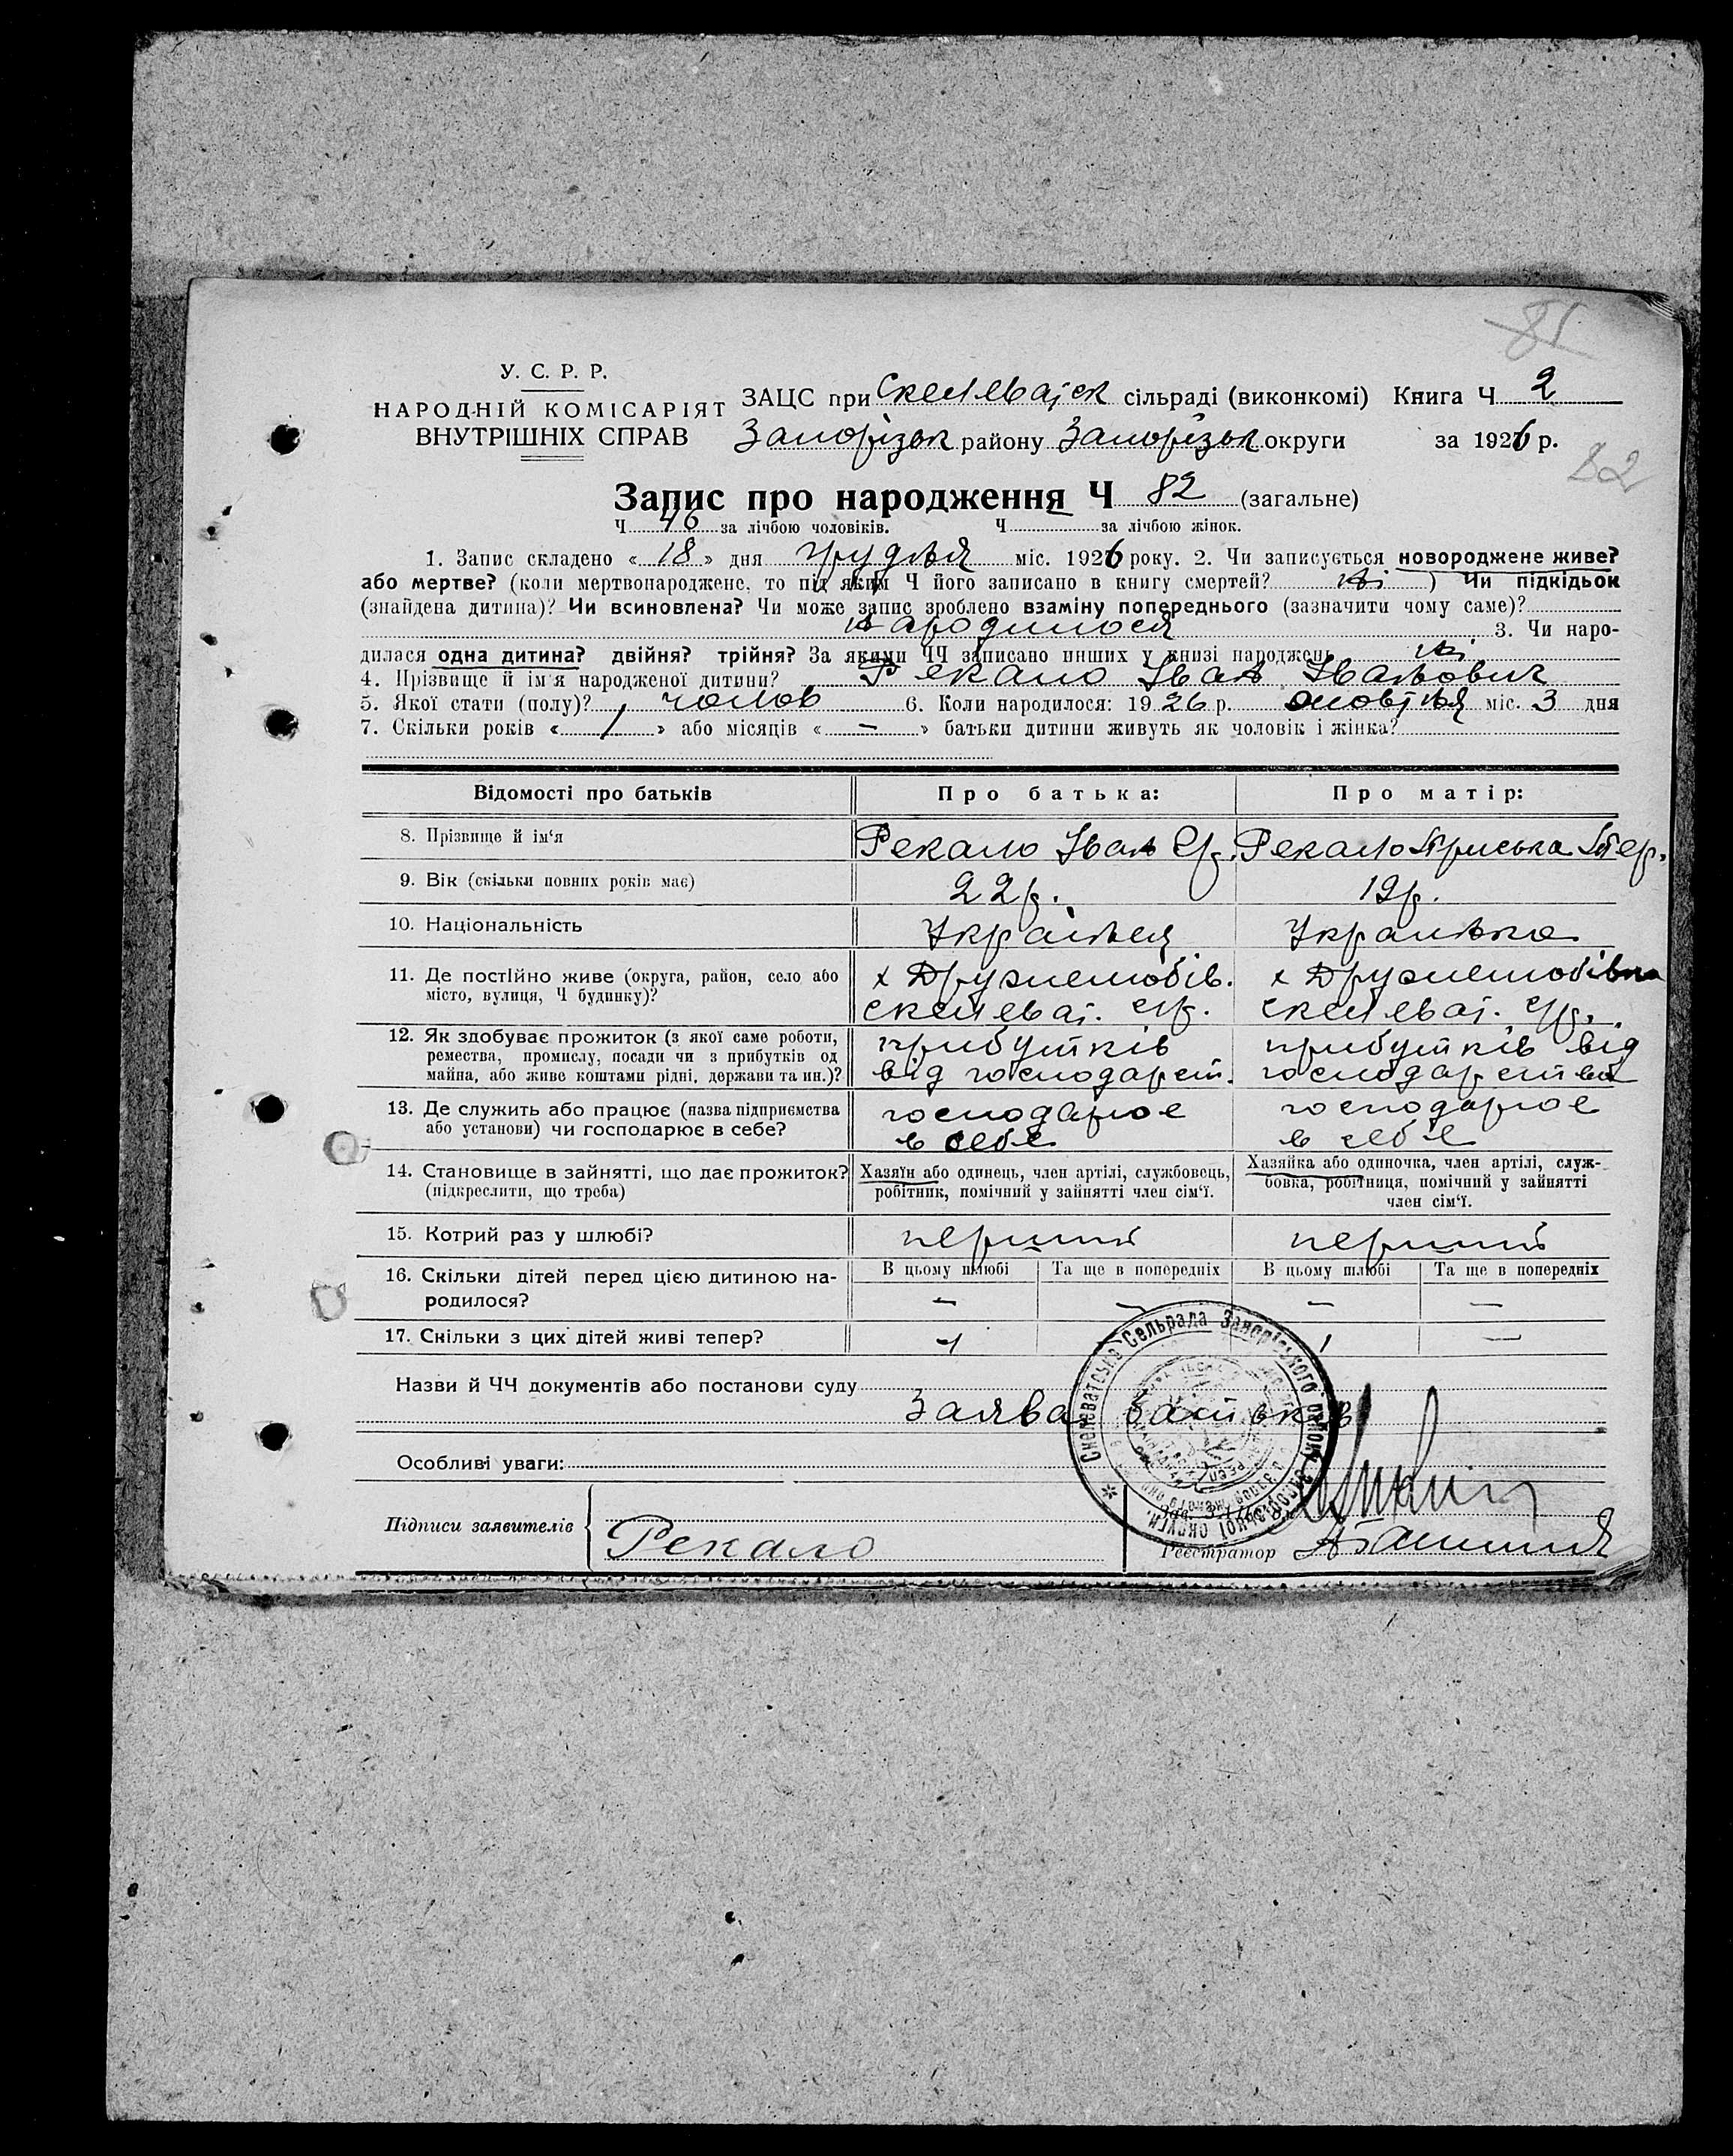 81
У. С. Р. Р.
НАРОДНІЙ КОМІСАРІЯТ
ВНУТРІШНІХ СПРАВ
ЗАЦС при Скелеват сільраді (виконкомі) Книга Ч 2
Запорізьк району Запорізьк округи за 1926 р.
82
Запис про народження Ч 82 (загальне)
Ч 46 за лічбою чоловіків. Ч — за лічбою жінок.
1. Запис складено «18» дня грудня міс. 1926 року. 2. Чи записується новороджене живе?
або мертве? (коли мертвонароджене, то під яким Ч його записано в книгу смертей? ні ) Чи підкідьок
(знайдена дитина)? Чи всиновлена? Чи може запис зроблено взаміну попереднього (зазначити чому саме)?
народилося 3. Чи наро-
дилася одна дитина? двійня? трійня? За якими ЧЧ записано инших у книзі народжень ні
4. Прізвище й ім'я народженої дитини? Рекало Іван Іванович
5. Якої стати (полу)? чолов 6. Коли народилося: 1926 р. жовтня міс. 3 дня
7. Скільки років « 1 » або місяців « — » батьки дитини живуть як чоловік і жінка?
Відомості про батьків Про батька: Про матір:
8. Прізвище й ім'я Рекало Іван Рекало Приська
9. Вік (скільки повних років має) 22 р. 19 р.
10. Національність Українец Українка
11. Де постійно живе (округа, район, село або х Дружелюбів. х Дружелюбівка
місто, вулиця, Ч будинку)? Скелеват. с/р. Скелеват. с/р.
12. Як здобуває прожиток (з якої саме роботи, прибутків прибутків від
ремества, промислу, посади чи з прибутків од
майна, або живе коштами рідні, держави та ин.)? від господарст. господарства
13. Де служить або працює (назва підприємства господарює господарює
або установи) чи господарює в себе? в себе в себе
14. Становище в зайнятті, що дає прожиток? Хазяїн або одинець, член артілі, службовець, Хазяйка або одиночка, член артілі, служ-
(підкреслити, що треба) робітник, помічний у зайнятті член сім'ї. бовка, робітниця, помічний у зайнятті
член сім'ї.
15. Котрий раз у шлюбі? перший перший
16. Скільки дітей перед цією дитиною на- В цьому шлюбі Та ще в попередніх В цьому шлюбі Та ще в попередніх
родилося? — — — —
17. Скільки з цих дітей живі тепер? 1 1 —
Назви й ЧЧ документів або постанови суду
Заява батьків
Скелеватська Сельрада Запорізького району Запорізької округи
Особливі уваги:
Підписи заявителів Рекало
Реєстратор